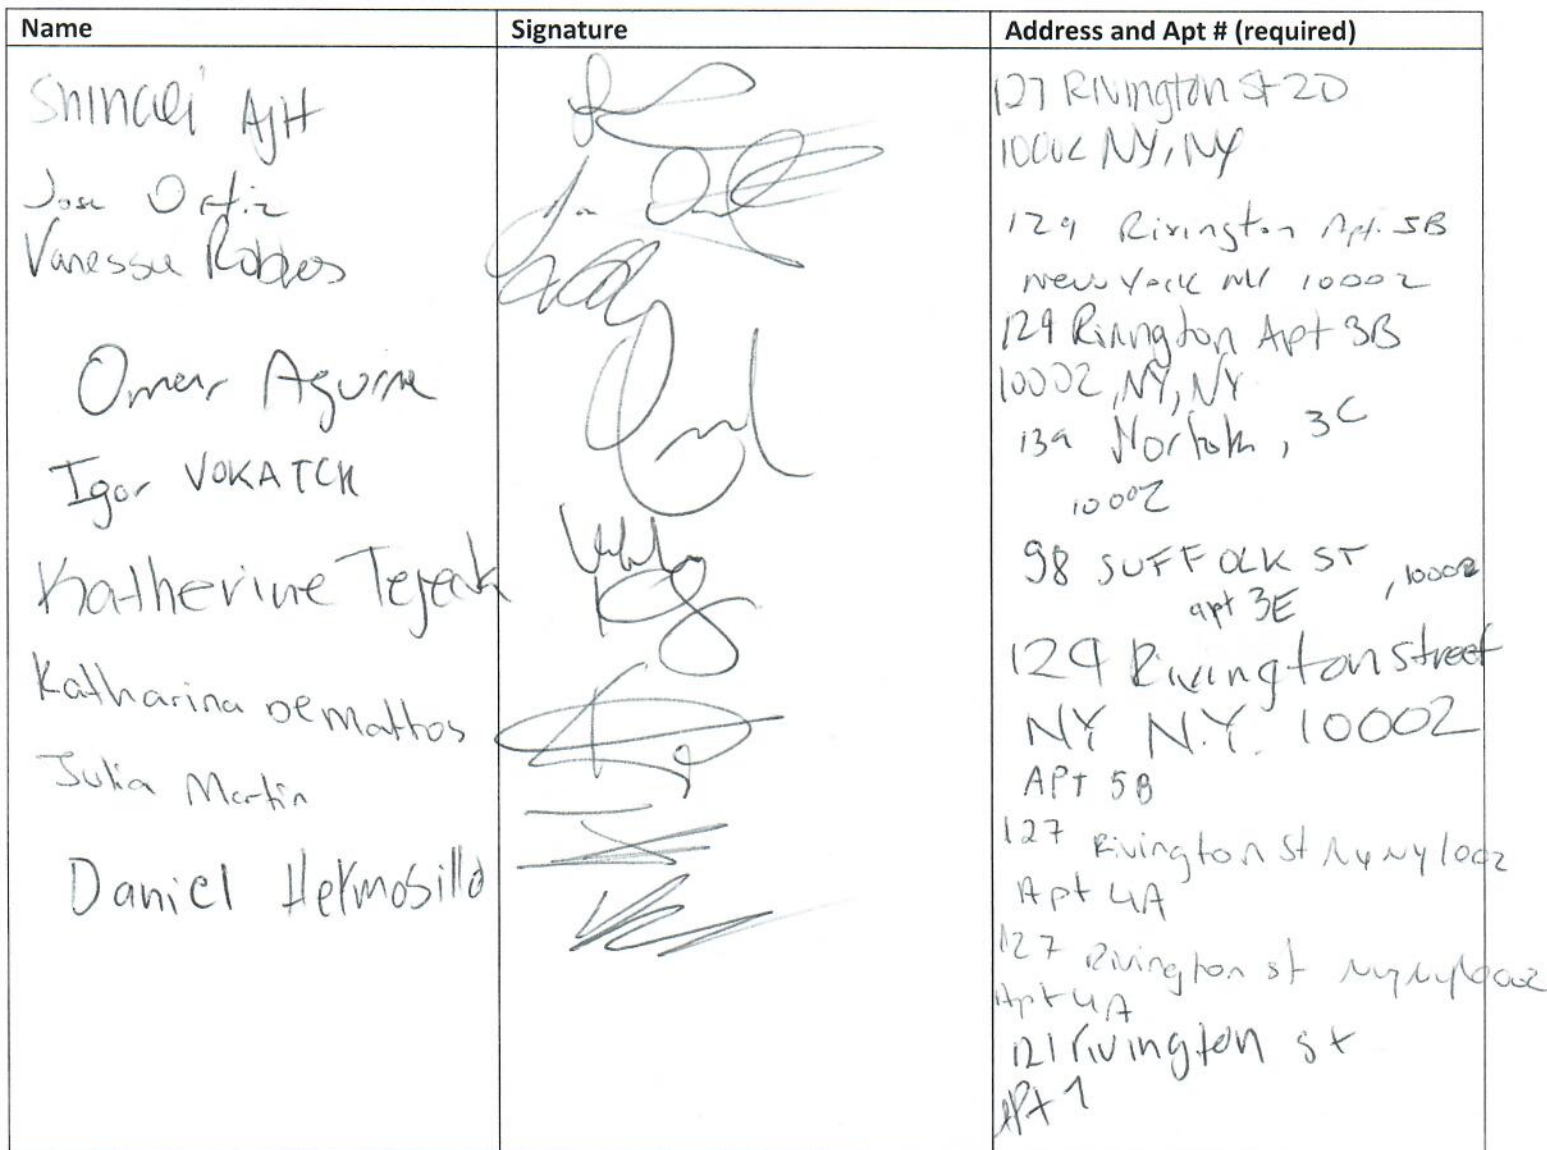 Name Signature Address and Apt # (required)
AJH
127 Rivington St 2D
10002 NY, NY
Jose Ortiz
129 Rivington Apt. 5B
New York NY 10002
Vanessa Robles
129 Rivington Apt 3B
10002, NY, NY
Omar Aguirre
139 Norfolk, 3C
10002
Igor VOKATCH
98 SUFFOLK ST
apt 3E, 10002
Katherine
129 Rivington Street
NY N.Y. 10002
APT 5B
Katharina De Mattos
127 Rivington St NY NY 10002
Apt 4A
Julia Martin
127 Rivington st NY NY 10002
Apt 4A
Daniel Hermosillo
121 rivington st
APt 1